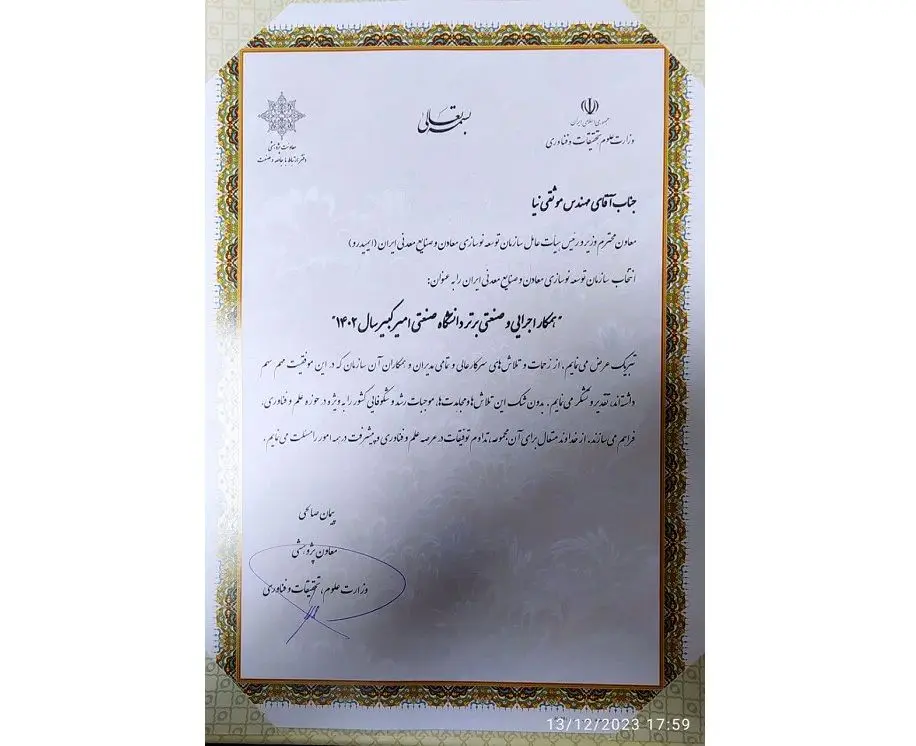 بسمه تعالی
جمهوری اسلامی ایران
وزارت علوم تحقیقات و فناوری
معاونت پژوهشی
دفتر ارتباط با جامعه و صنعت
جناب آقای مهندس موثقی نیا
معاون محترم وزیر و رئیس هیأت عامل سازمان توسعه نوسازی معادن و صنایع معدنی ایران (ایمیدرو)
انتخاب سازمان توسعه نوسازی معادن و صنایع معدنی ایران را به عنوان:
"همکار اجرایی و صنعتی برتر دانشگاه صنعتی امیرکبیر سال ۱۴۰۲"
تبریک عرض می نمایم، از زحمات و تلاش های سرکارعالی و تمامی مدیران و همکاران آن سازمان که در این موفقیت مهم سهم
داشته‌اند، تقدیر و تشکر می نمایم. بدون شک این تلاش ها و مجاهدت ها، موجبات رشد و شکوفایی کشور را به ویژه در حوزه علم و فناوری،
فراهم می سازند. از خداوند متعال برای آن مجموعه، تداوم توفیقات در عرصه علم و فناوری و پیشرفت در همه امور را مسئلت می نمایم.
پیمان صالحی
معاون پژوهشی
وزارت علوم، تحقیقات و فناوری
13/12/2023 17:59